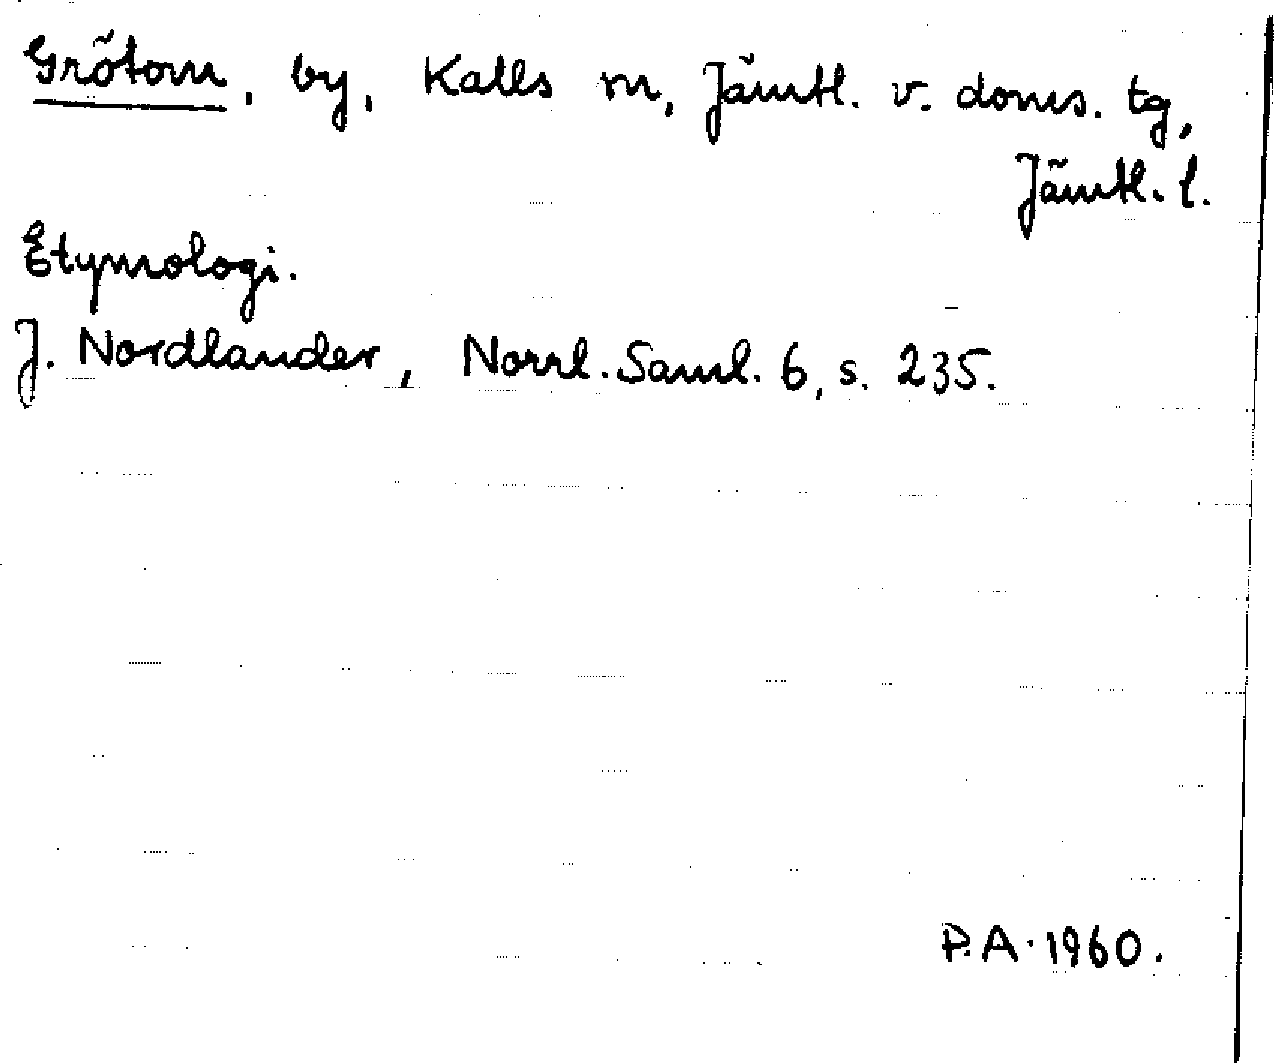 Grötom, by, Kalls sn, Jämtl. v. doms. tg,
Jämtl. l.
Etymologi.
J. Nordlander, Norrl. Saml. 6, s. 235.
P.A. 1960.